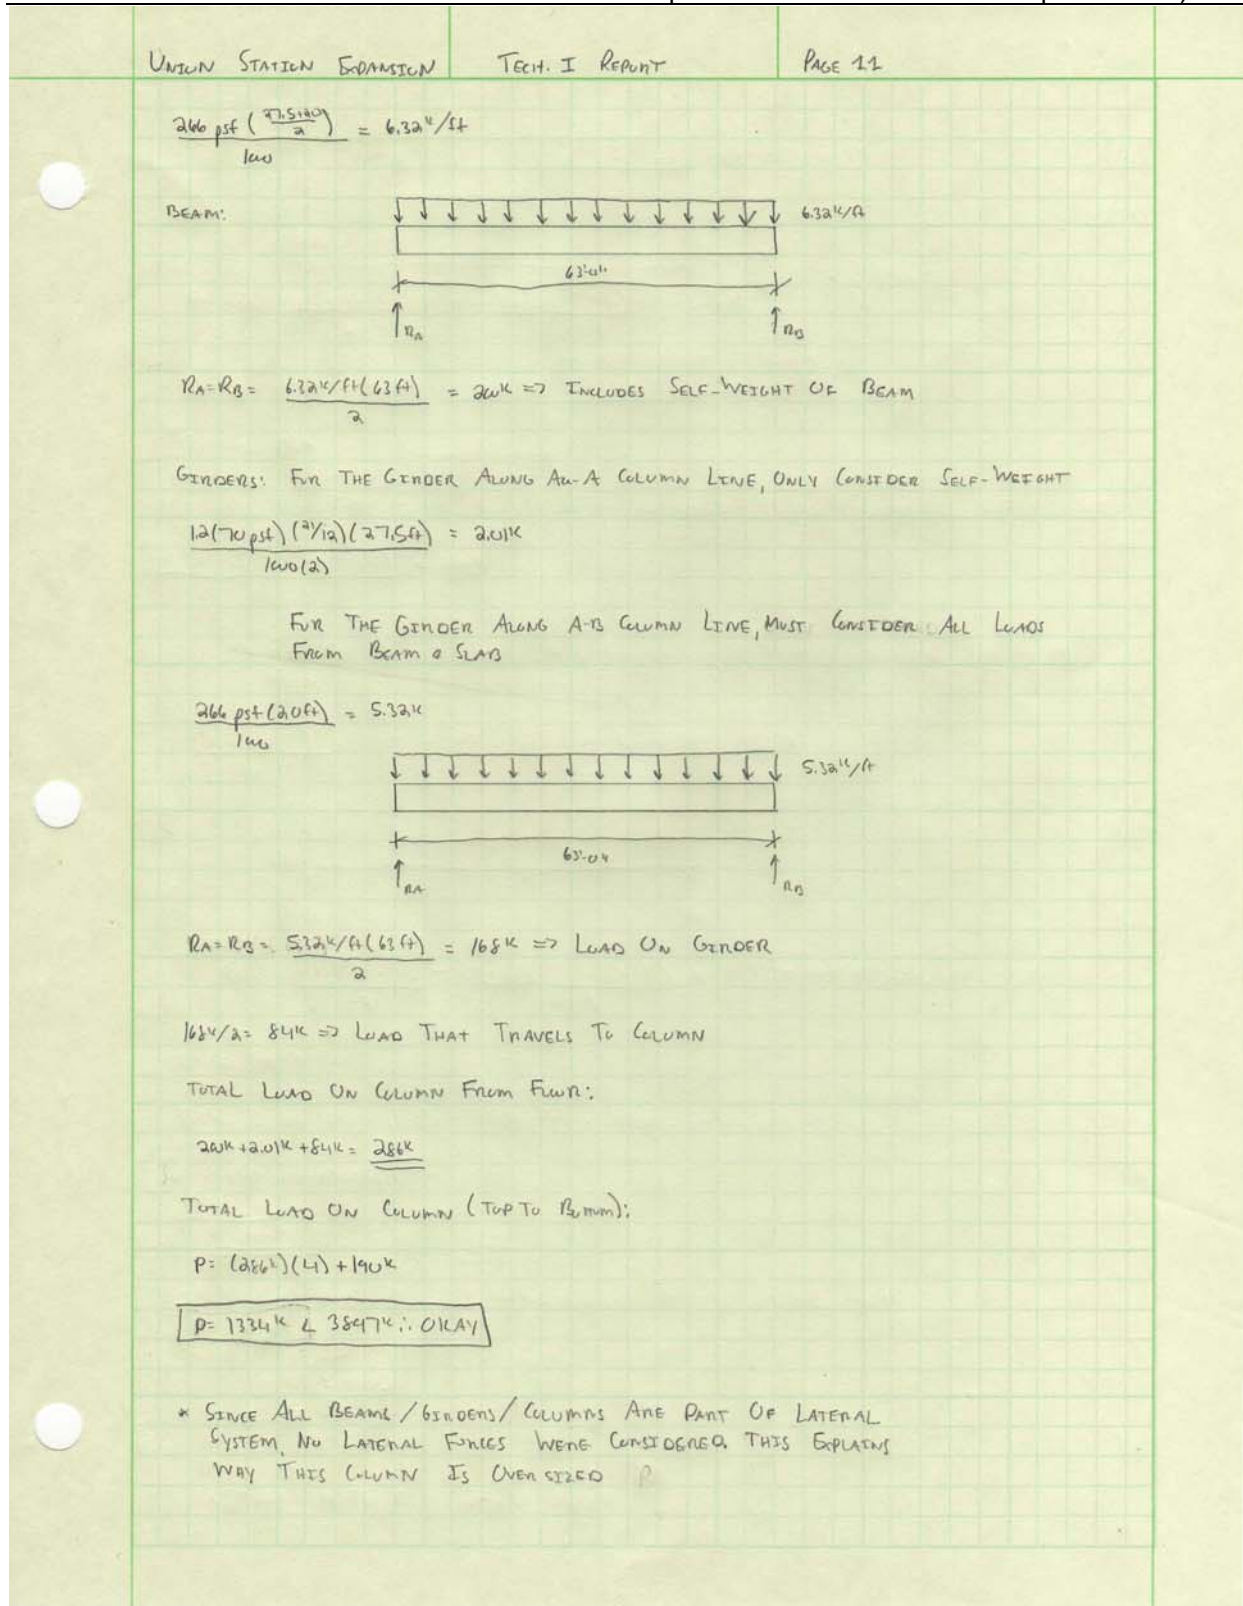 UNION STATION EXPANSION TECH. I REPORT PAGE 11
266 psf (27.5+20/2) / 1000 = 6.32k/ft
BEAM:
6.32k/ft
63'-0"
RA RB
RA=RB= 6.32k/ft(63ft) / 2 = 200k => INCLUDES SELF-WEIGHT OF BEAM
GIRDERS: FOR THE GIRDER ALONG AA-A COLUMN LINE, ONLY CONSIDER SELF-WEIGHT
1.2(70psf)(21/12)(27.5ft) / 1000(2) = 2.01k
FOR THE GIRDER ALONG A-B COLUMN LINE, MUST CONSIDER ALL LOADS
FROM BEAM & SLAB
266 psf(20ft) / 1000 = 5.32k
5.32k/ft
63'-0"
RA RB
RA=RB= 5.32k/ft(63ft) / 2 = 168k => LOAD ON GIRDER
168k/2= 84k => LOAD THAT TRAVELS TO COLUMN
TOTAL LOAD ON COLUMN FROM FLOOR:
200k+2.01k+84k= 286k
TOTAL LOAD ON COLUMN (TOP TO BOTTOM):
P= (286k)(4)+190k
P= 1334k < 3847k ∴ OKAY
* SINCE ALL BEAMS/GIRDERS/COLUMNS ARE PART OF LATERAL
SYSTEM, NO LATERAL FORCES WERE CONSIDERED. THIS EXPLAINS
WAY THIS COLUMN IS OVERSIZED